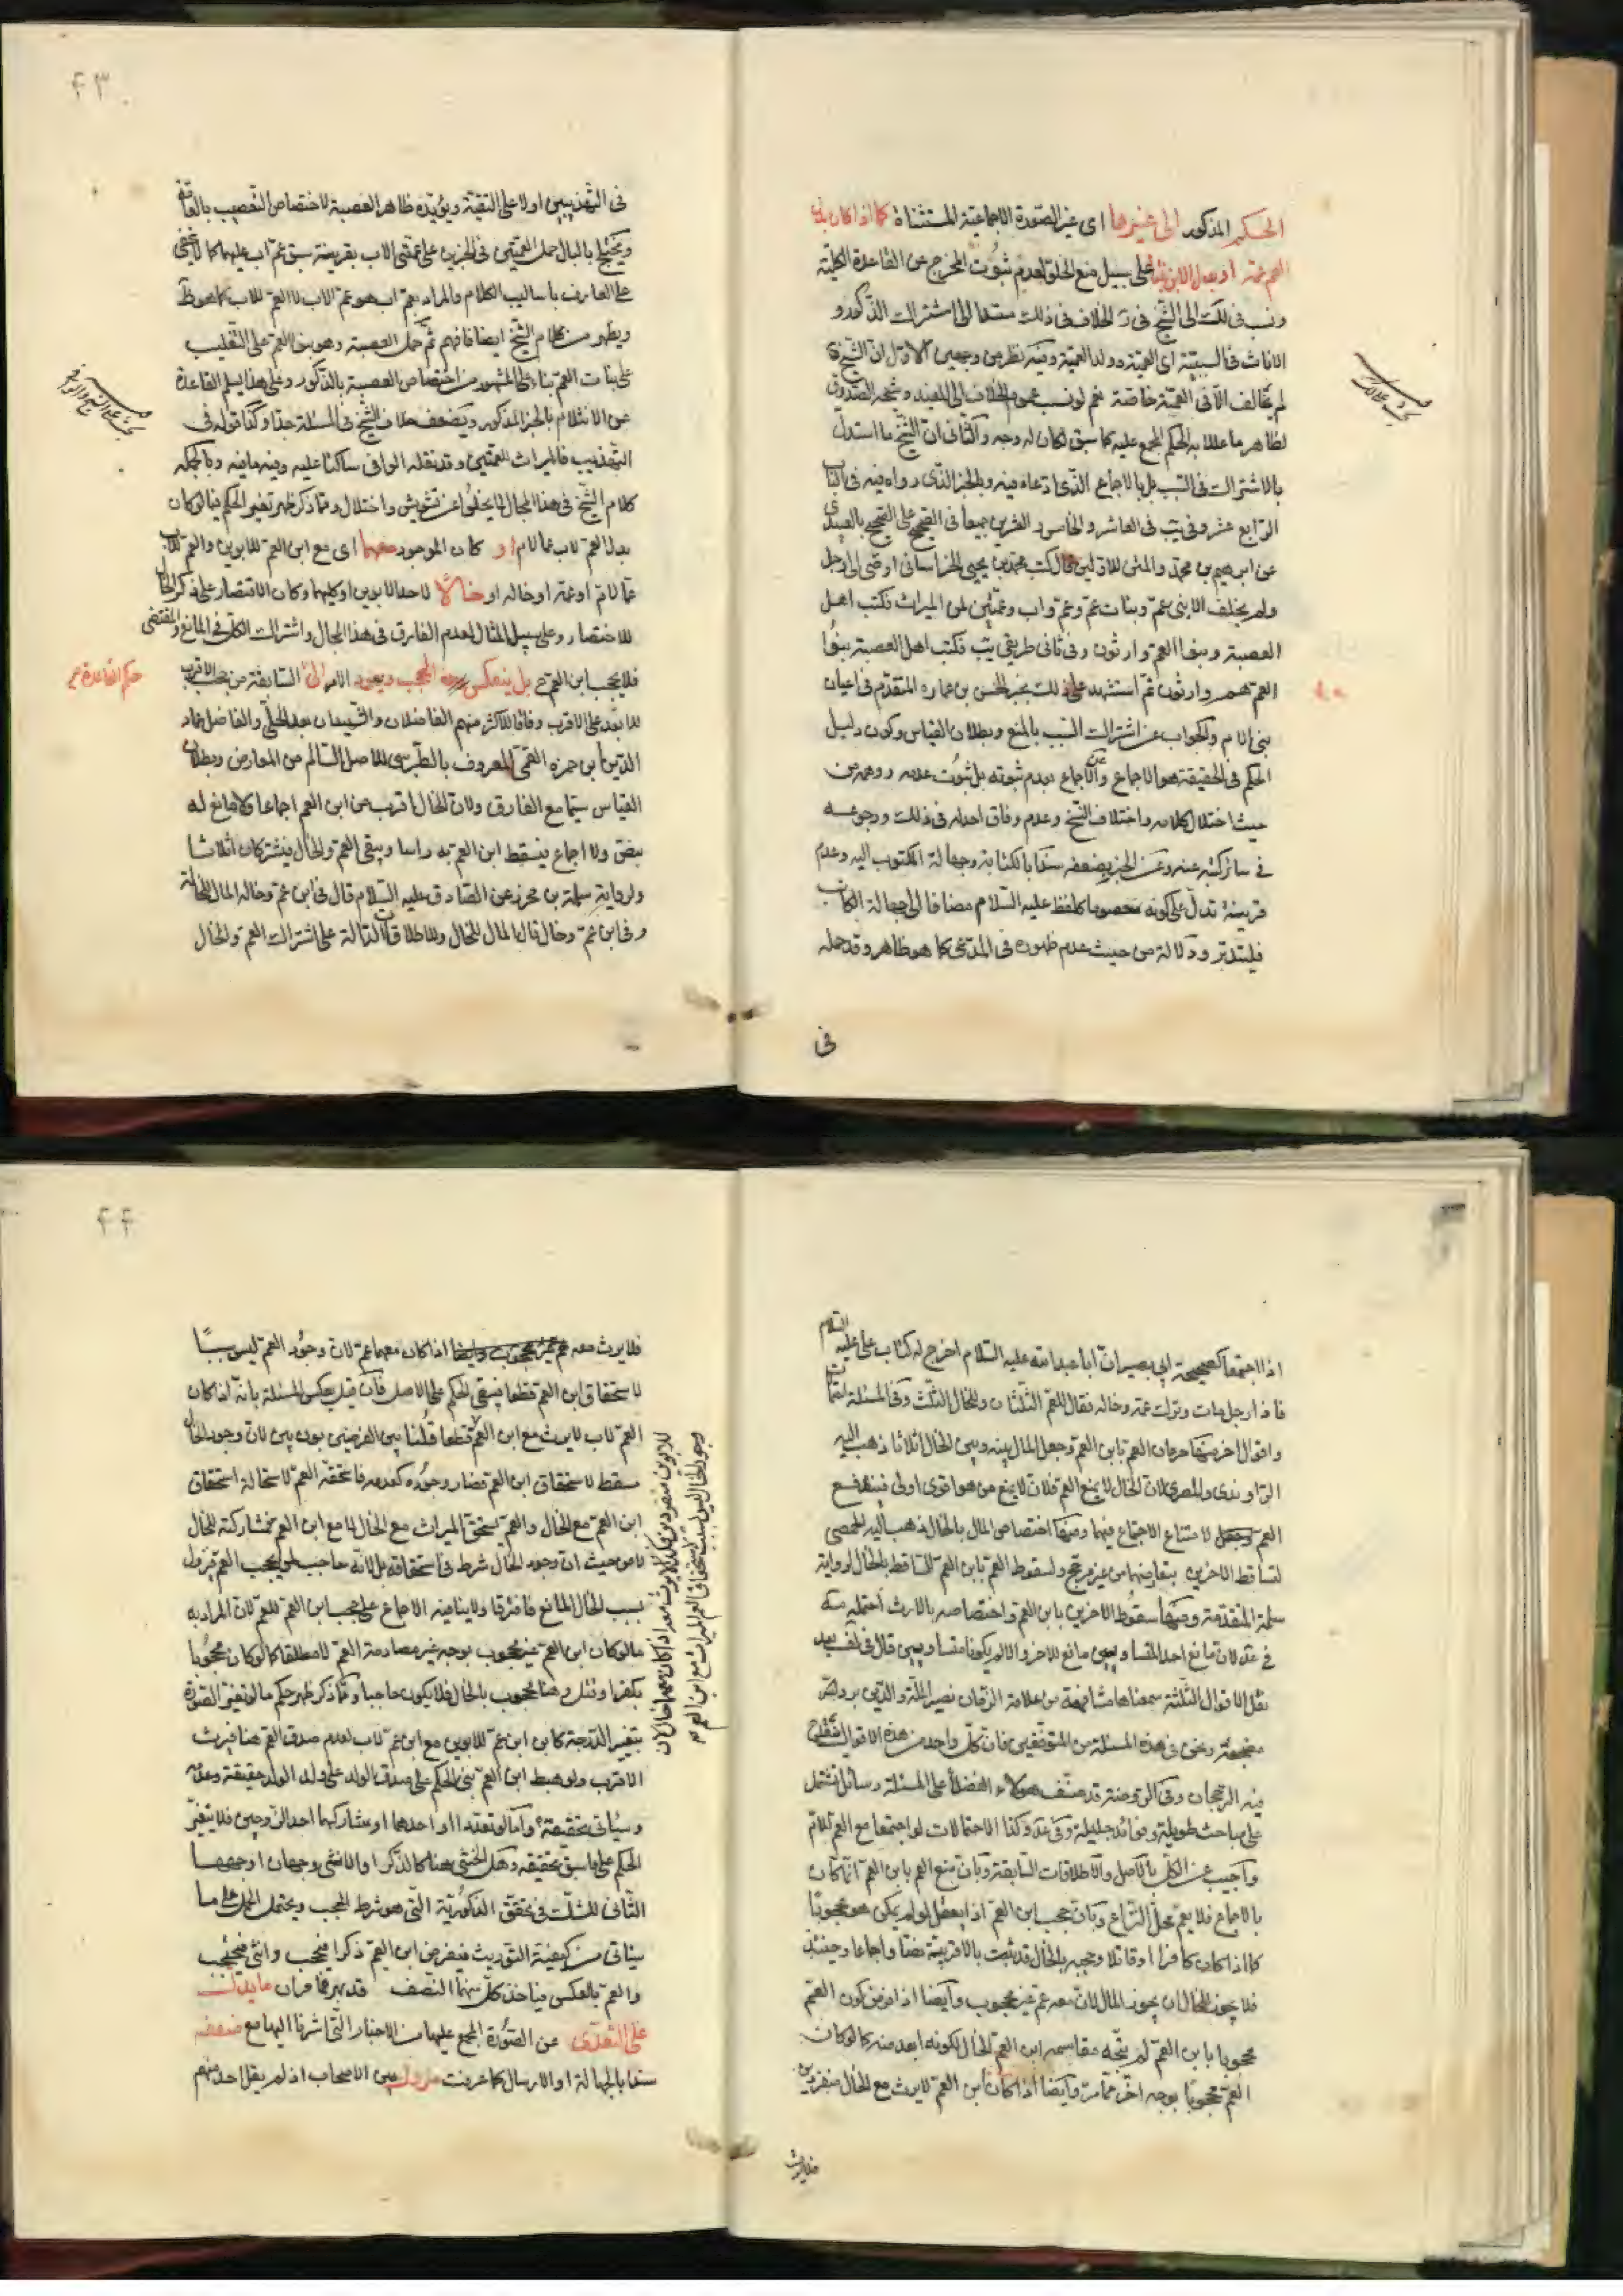 الحكم المذكور الى غيرها اى غير الصورة الاجماعية المستثناة كما اذا كان بدل
العم عمة او بدل الابن بنتا على سبيل منع الخلو لعدم ثبوت المخرج عن القاعدة الكلية
ونسب فى لك الى الشيخ فى ر الخلاف فى ذلك مستندا الى اشتراك الذكور و
الاناث فى السببية اى العمية وولد العمية وفيه نظر من وجهين الاول ان الشيخ ره
لم يخالف الا فى العمة خاصة نعم لو نسب عموم الخلاف الى المفيد وشيخه الصدوق
لظاهر ما عللا به الحكم المجمع عليه كما سبق لكان له وجه والثانى ان الشيخ ما استدل
بالاشتراك فى السبب بل بالاجماع الذى ادعاه فيه وبالخبر الذى رواه فيه فى الباب
الرابع عشر وفى يب فى العاشر والخامس والعشرين جميعا فى الصحيح على الصحيح بالعبيدى
عن ابرهيم بن محمد والمثنى للاولين قال كتب محمد بن يحيى الخراسانى اوصى الى رجل
ولم يخلف الا بنى عم وبنات عم وعم واب وعمتين لمن الميراث فكتب اهل
العصبة وبنوا العم وارثون وفى ثانى طريقى يب فكتب اهل العصبة بنوا
العم هم وارثون ثم استشهد على ذلك بخبر الحسن بن عمارة المتقدم فى اعيان
بنى الام والجواب عن اشتراك السبب بالمنع وبطلان القياس وكون دليل
الحكم فى الحقيقة هو الاجماع وعن الاجماع بعدم ثبوته بل ثبوت عدمه ووهمه من
حيث اختلال كلامه واختلاف النسخ وعدم وفاق احد له فى ذلك ورجوعه
فى سائر كتبه عنه وعن الخبر بضعفه سندا بالكتابة وجهالة المكتوب اليه وعدم
قرينة تدل على كونه معصوما كلفظ عليه السلام مضافا الى جهالة الكاتب
فليتدبر ودلالة من حيث عدم ظهوره فى المدعى كما هو ظاهر وقد حمله
فى
٤٣
فى التهذيبين اولا على التقية ويؤيده ظاهر العصبة لاختصاص التعصيب بالعامة
ويختلج بالبال حمل العمتين فى الخبرين على عمتى الاب بقرينة سبق عم اب عليهما كما لا يخفى
على العارف باساليب الكلام والمراد بعم اب هو عم الاب لا العم للاب كما هو ظ
ويظهر من كلام الشيخ ايضا فافهم ثم حمل العصبة وهو بنوا العم على التغليب
على بنات العم بناء على المشهور من اختصاص العصبة بالذكور وعلى هذا يسلم القاعدة
عن الانثلام بالخبر المذكور ويضعف خلاف الشيخ فى المسئلة جدا وكذا قوله فى
التهذيب فالميراث للعمتين وقد نقله الوافى ساكتا عليه وفيه ما فيه وبالجملة
كلام الشيخ فى هذا المجال لا يخلوا عن تشويش واختلال ومما ذكر ظهر تغير الحكم فيما لو كان
بدل العم لاب عما لام او كان الموجود معهما اى مع ابن العم للابوين والعم للاب
عما لام او عمة او خاله او خالًا لاحد الابوين او كليهما وكان الاقتصار على ذكر الخال
للاختصار وعلى سبيل المثال لعدم الفارق فى هذا المجال واشتراك الكل فى المانع والمقتضى
فلا يحجب ابن العم ح بل ينعكس الحجب ويعود الامر الى السابقة من حجب الاقرب
حكم القاعدة ح
للابعد على الاقرب وفاقا للاكثر منهم الفاضلان والشهيدان بعد الحلى والفاضل عماد
الدين ابن حمزه القمى المعروف بالطبرسى للاصل السالم من المعارض وبطلان
القياس سيما مع الفارق ولان الخال اقرب من ابن العم اجماعا ولا مانع له
بنص ولا اجماع فيسقط ابن العم به راسا ويبقى العم والخال فيشتركان اثلاثا
ولرواية سلمة بن محرز عن الصادق عليه السلام قال فى ابن عم وخالة المال للخالة
وفى ابن عم وخال قال المال للخال وللاطلاقات الدالة على اشتراك العم والخال
اذا اجتمعا كصحيحة ابى بصير ان ابا عبد الله عليه السلام اخرج له كتاب على عليه السلام
فاذا رجل مات وترك عمه وخاله فقال للعم الثلثان وللخال الثلث وفى المسئلة ايضا
واقوال اخر منها حرمان العم بابن العم وجعل المال بينه وبين الخال اثلاثا ذهب اليه
الراوندى والمصرى لان الخال لا يمنع العم فلان لا يمنع من هو اقوى اولى فيندفع
العم لامتناع الاجتماع فيهما ومنها اختصاص المال بالخال ذهب اليه الحمصى
لتساقط الاخرين بتعارضهما من غير مرجح ولسقوط العم بابن العم الساقط بالخال لرواية
سلمة المتقدمة ومنها سقوط الاخرين بابن العم واختصاصه بالارث احتمله مة
فى عد لان مانع احد المتساويين مانع للاخر والا لم يكونا متساويين قال فى لف بعد
نقل الاقوال الثلثة سمعناها مشافهة من علامة الزمان نصير الملة والدين برد الله
مضجعه ونحن فى هذه المسئلة من المتوقفين فان كل واحد من هذه الاقوال
فيه الرجحان وفى الروضة قد صنف هؤلاء الفضلاء على المسئلة رسائل تشتمل
على مباحث طويلة وفوائد جليلة وفى عد وكذا الاحتمالات لو اجتمعا مع العم للام
واجيب عن الكل بالاصل والاطلاقات السابقة وبان منع العم بابن العم انما كان
بالاجماع فلا يعم محل النزاع وبان حجب ابن العم اذا يعقل لو لم يكن هو محجوبا
كما اذا كان كافرا او قاتلا وحجبه بالخال قد ثبت بالاقربية نصا واجماعا وحينئذ
فلا يجوز للخال ان يحوز المال لان معه عم غير محجوب وايضا اذا فرض كون العم
محجوبا بابن العم لم يتجه مقاسمة ابن العم للخال لكونه ابعد منه كما لو كان
العم محجوبا بوجه اخر مما مر وايضا اذا كان ابن العم لا يرث مع الخال منفردين
فلا يرث
٤٤
فلا يرث معه اذا كان معهما عم لان وجود العم ليس سببا
لاستحقاق ابن العم قطعا فيبقى الحكم على الاصل فان قيل بعكس المسئلة بانه اذا كان
العم لاب لا يرث مع ابن العم قطعا قلنا بين الفرضين بون بين لان وجود الخال
مسقط لاستحقاق ابن العم فصار وجوده كعدمه فاستحقه العم لاستحالة استحقاق
ابن العم مع الخال والعم يستحق الميراث مع الخال لا مع ابن العم فمشاركته للخال
لا من حيث ان وجود الخال شرط فى استحقاقه بل لانه حاجب لمن يحجب العم فزوال
بسبب الخال المانع فافترقا ولا ينافيه الاجماع على حجب ابن العم للعم لان المراد به
ما لو كان ابن العم غير محجوب بوجه غير مصادمة العم لا مطلقا كما لو كان محجوبا
بكفر او قتل وهنا محجوب بالخال فلا يكون حاجبا ومما ذكر ظهر حكم ما لو تغير الصورة
بتغيير الدرجة كابن ابن عم للابوين مع ابن عم لاب لعدم صدق العم هنا فيرث
الاقرب ولو هبط ابن العم بنى الحكم على صدق الولد على ولد الولد حقيقة وعدمه
وسياتى تحقيقه واما لو تعددا او احدهما او شاركهما احد الزوجين فلا يتغير
الحكم على ما سبق تحقيقه وهل الخنثى هنا كالذكر او الانثى وجهان اوجههما
الثانى للشك فى تحقق الذكورية التى هو شرط الحجب ويحتمل الحمل على ما
سياتى من كيفية التوريث فيفرض ابن العم ذكرا فيحجب وانثى فيحجب
والعم بالعكس فياخذ كل منهما النصف قد بهر مما مر ان ما يدل
على التعدى عن الصورة المجمع عليها من الاخبار التى اشرنا اليها مع ضعفه
سندا بالجهالة او الارسال كما عرفت متروك بين الاصحاب اذ لم يقل احد منهم
للابوين منفردين فكذا لا يرث معه اذا كان معهما خال لان
وجود الخال ليس سببا لاستحقاق العم الميراث مع ابن العم